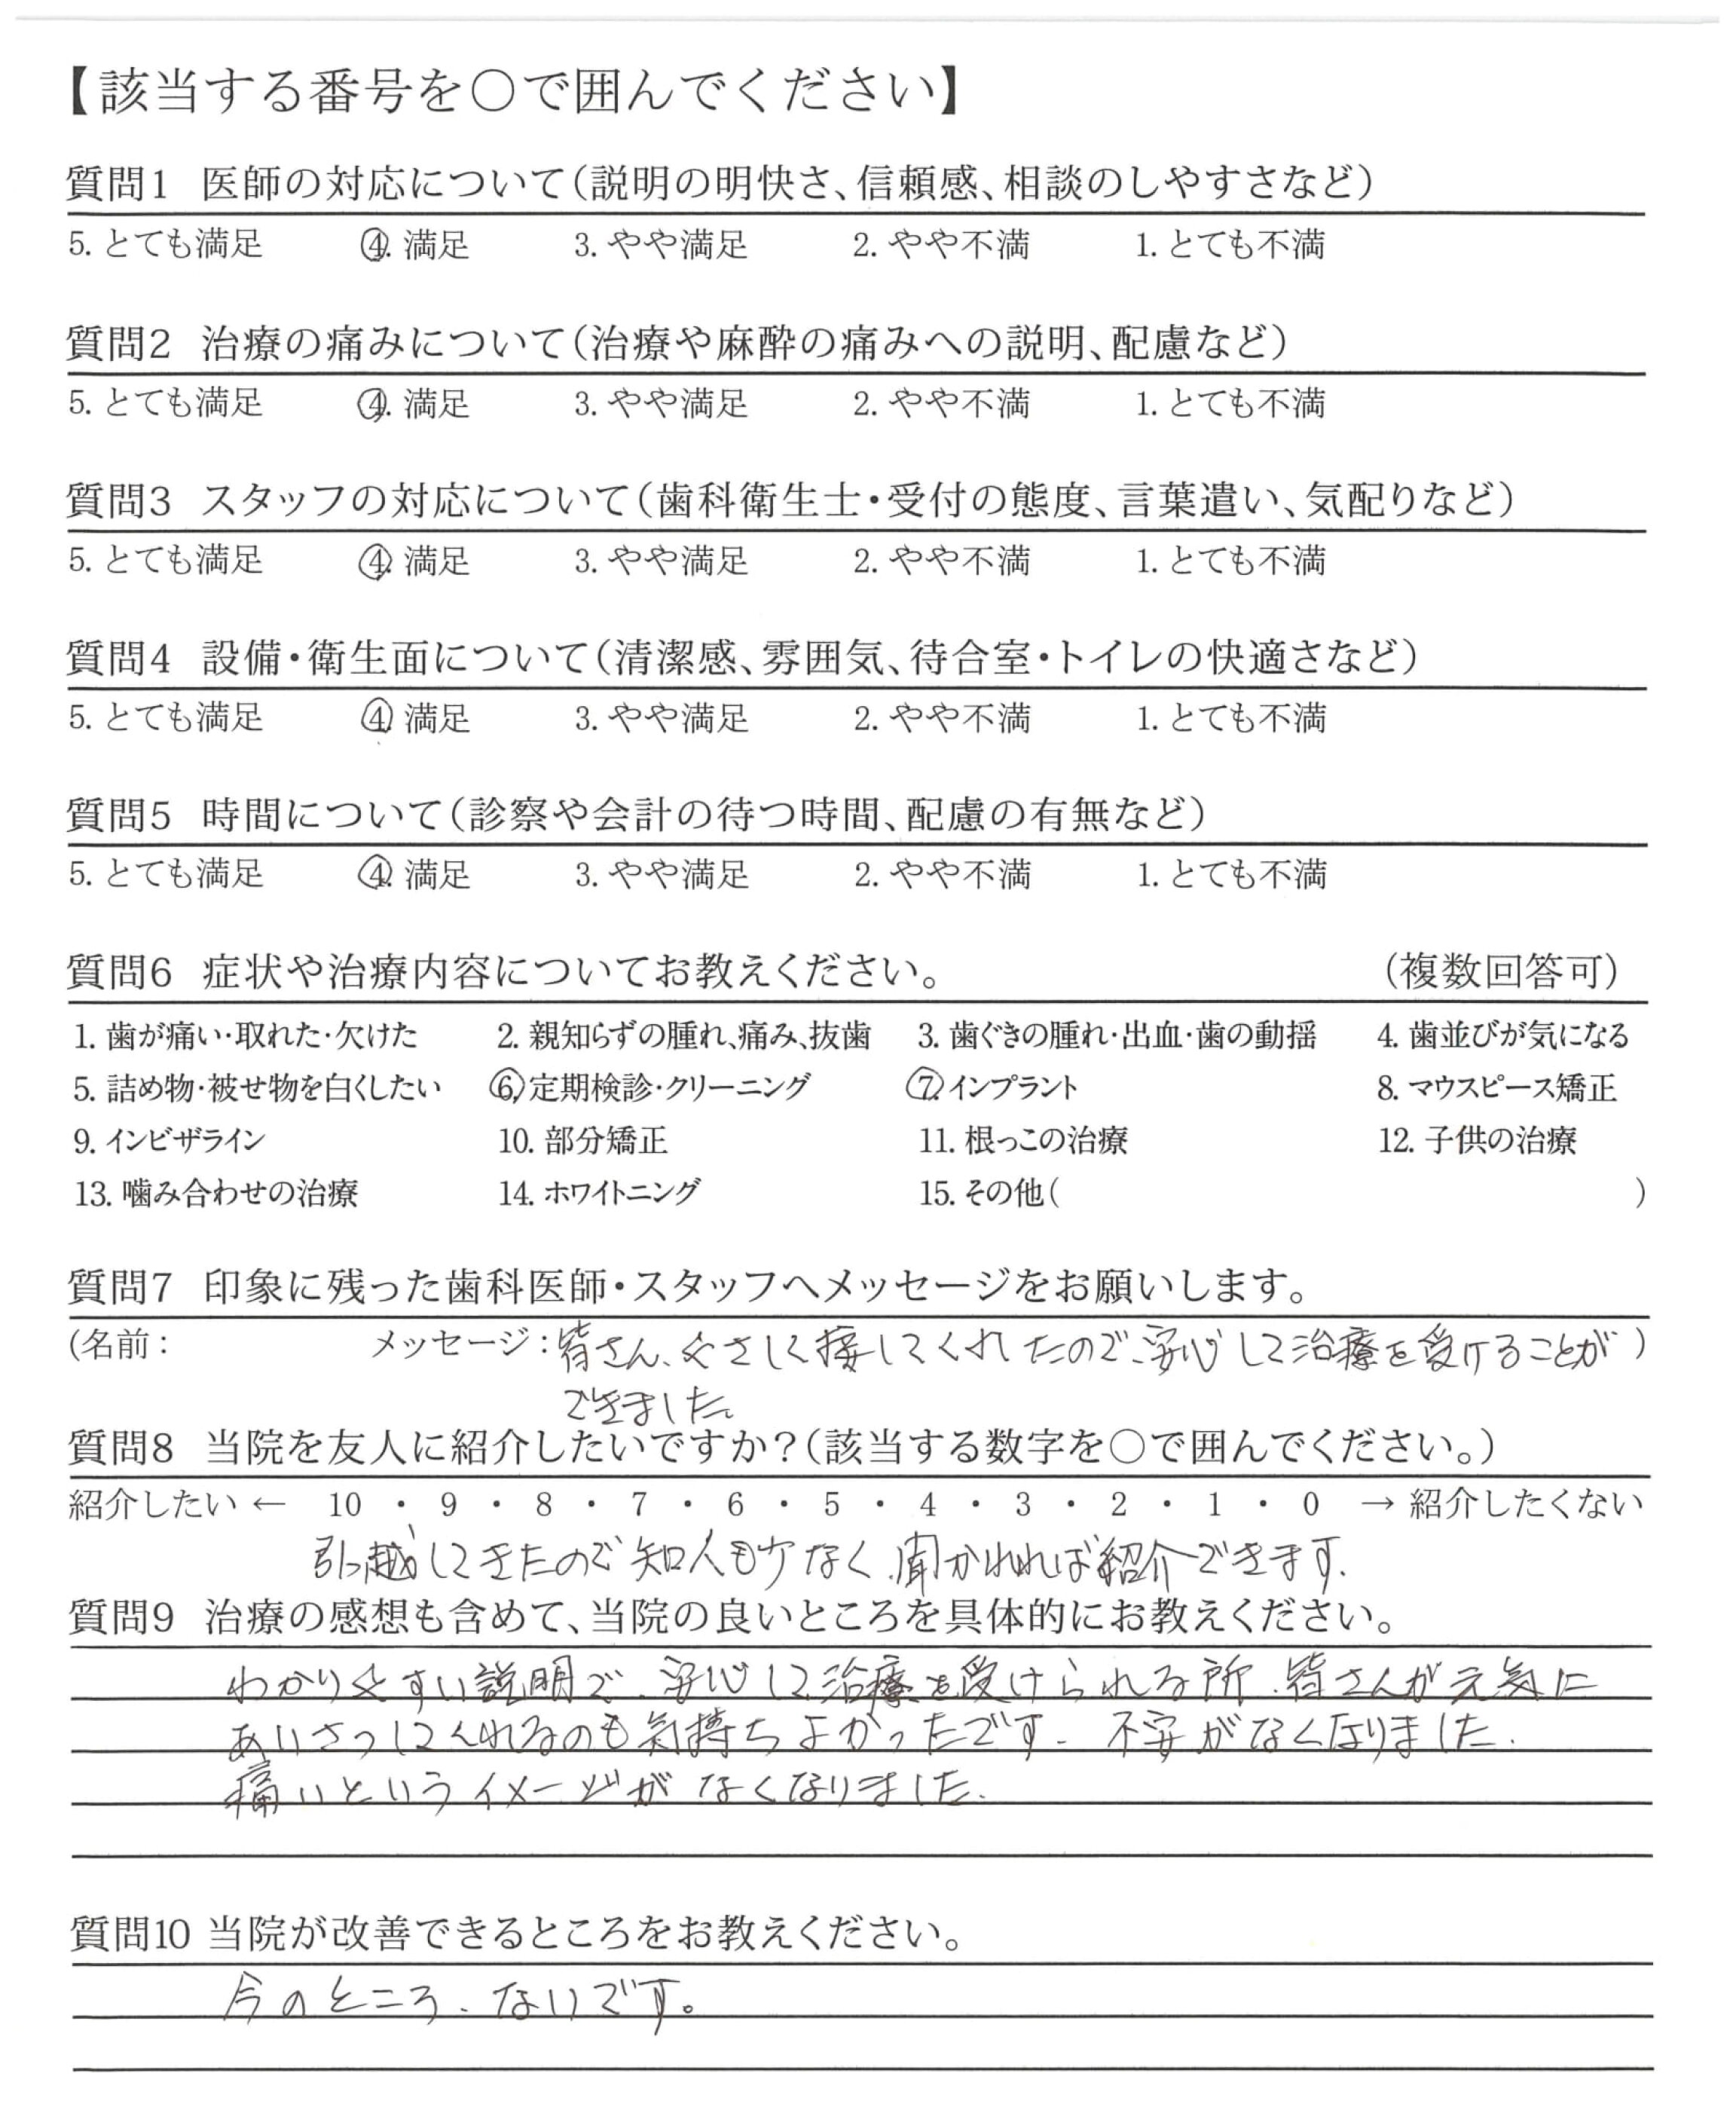 【該当する番号を○で囲んでください】
質問1 医師の対応について(説明の明快さ、信頼感、相談のしやすさなど)
5. とても満足 ④. 満足 3. やや満足 2. やや不満 1. とても不満
質問2 治療の痛みについて(治療や麻酔の痛みへの説明、配慮など)
5. とても満足 ④. 満足 3. やや満足 2. やや不満 1. とても不満
質問3 スタッフの対応について(歯科衛生士・受付の態度、言葉遣い、気配りなど)
5. とても満足 ④. 満足 3. やや満足 2. やや不満 1. とても不満
質問4 設備・衛生面について(清潔感、雰囲気、待合室・トイレの快適さなど)
5. とても満足 ④. 満足 3. やや満足 2. やや不満 1. とても不満
質問5 時間について(診察や会計の待つ時間、配慮の有無など)
5. とても満足 ④. 満足 3. やや満足 2. やや不満 1. とても不満
質問6 症状や治療内容についてお教えください。 (複数回答可)
1. 歯が痛い・取れた・欠けた 2. 親知らずの腫れ、痛み、抜歯 3. 歯ぐきの腫れ・出血・歯の動揺 4. 歯並びが気になる
5. 詰め物・被せ物を白くしたい ⑥. 定期検診・クリーニング ⑦. インプラント 8. マウスピース矯正
9. インビザライン 10. 部分矯正 11. 根っこの治療 12. 子供の治療
13. 噛み合わせの治療 14. ホワイトニング 15. その他( )
質問7 印象に残った歯科医師・スタッフへメッセージをお願いします。
(名前: メッセージ:皆さん、やさしく接してくれたので、安心して治療を受けることが )
できました。
質問8 当院を友人に紹介したいですか?(該当する数字を○で囲んでください。)
紹介したい ← 10 ・ 9 ・ 8 ・ 7 ・ 6 ・ 5 ・ 4 ・ 3 ・ 2 ・ 1 ・ 0 → 紹介したくない
引っ越してきたので知人も少なく、聞かれれば紹介できます.
質問9 治療の感想も含めて、当院の良いところを具体的にお教えください。
わかりやすい説明で、安心して治療を受けられる所、皆さんが元気に
あいさつしてくれるのも気持ちよかったです. 不安がなくなりました.
痛いというイメージがなくなりました.
質問10 当院が改善できるところをお教えください。
今のところ、ないです。